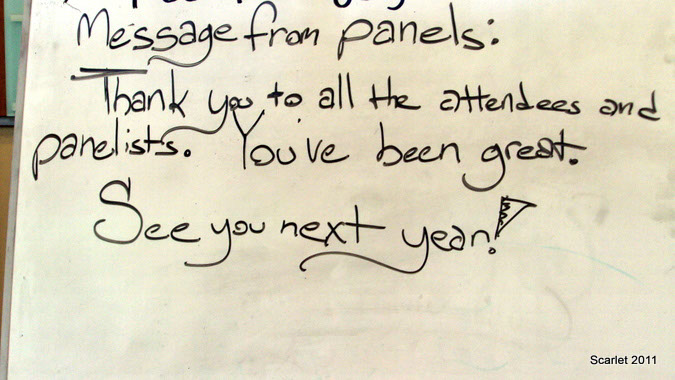 Message from panels:
Thank you to all the attendees and
panelists. You've been great.
See you next year!
Scarlet 2011